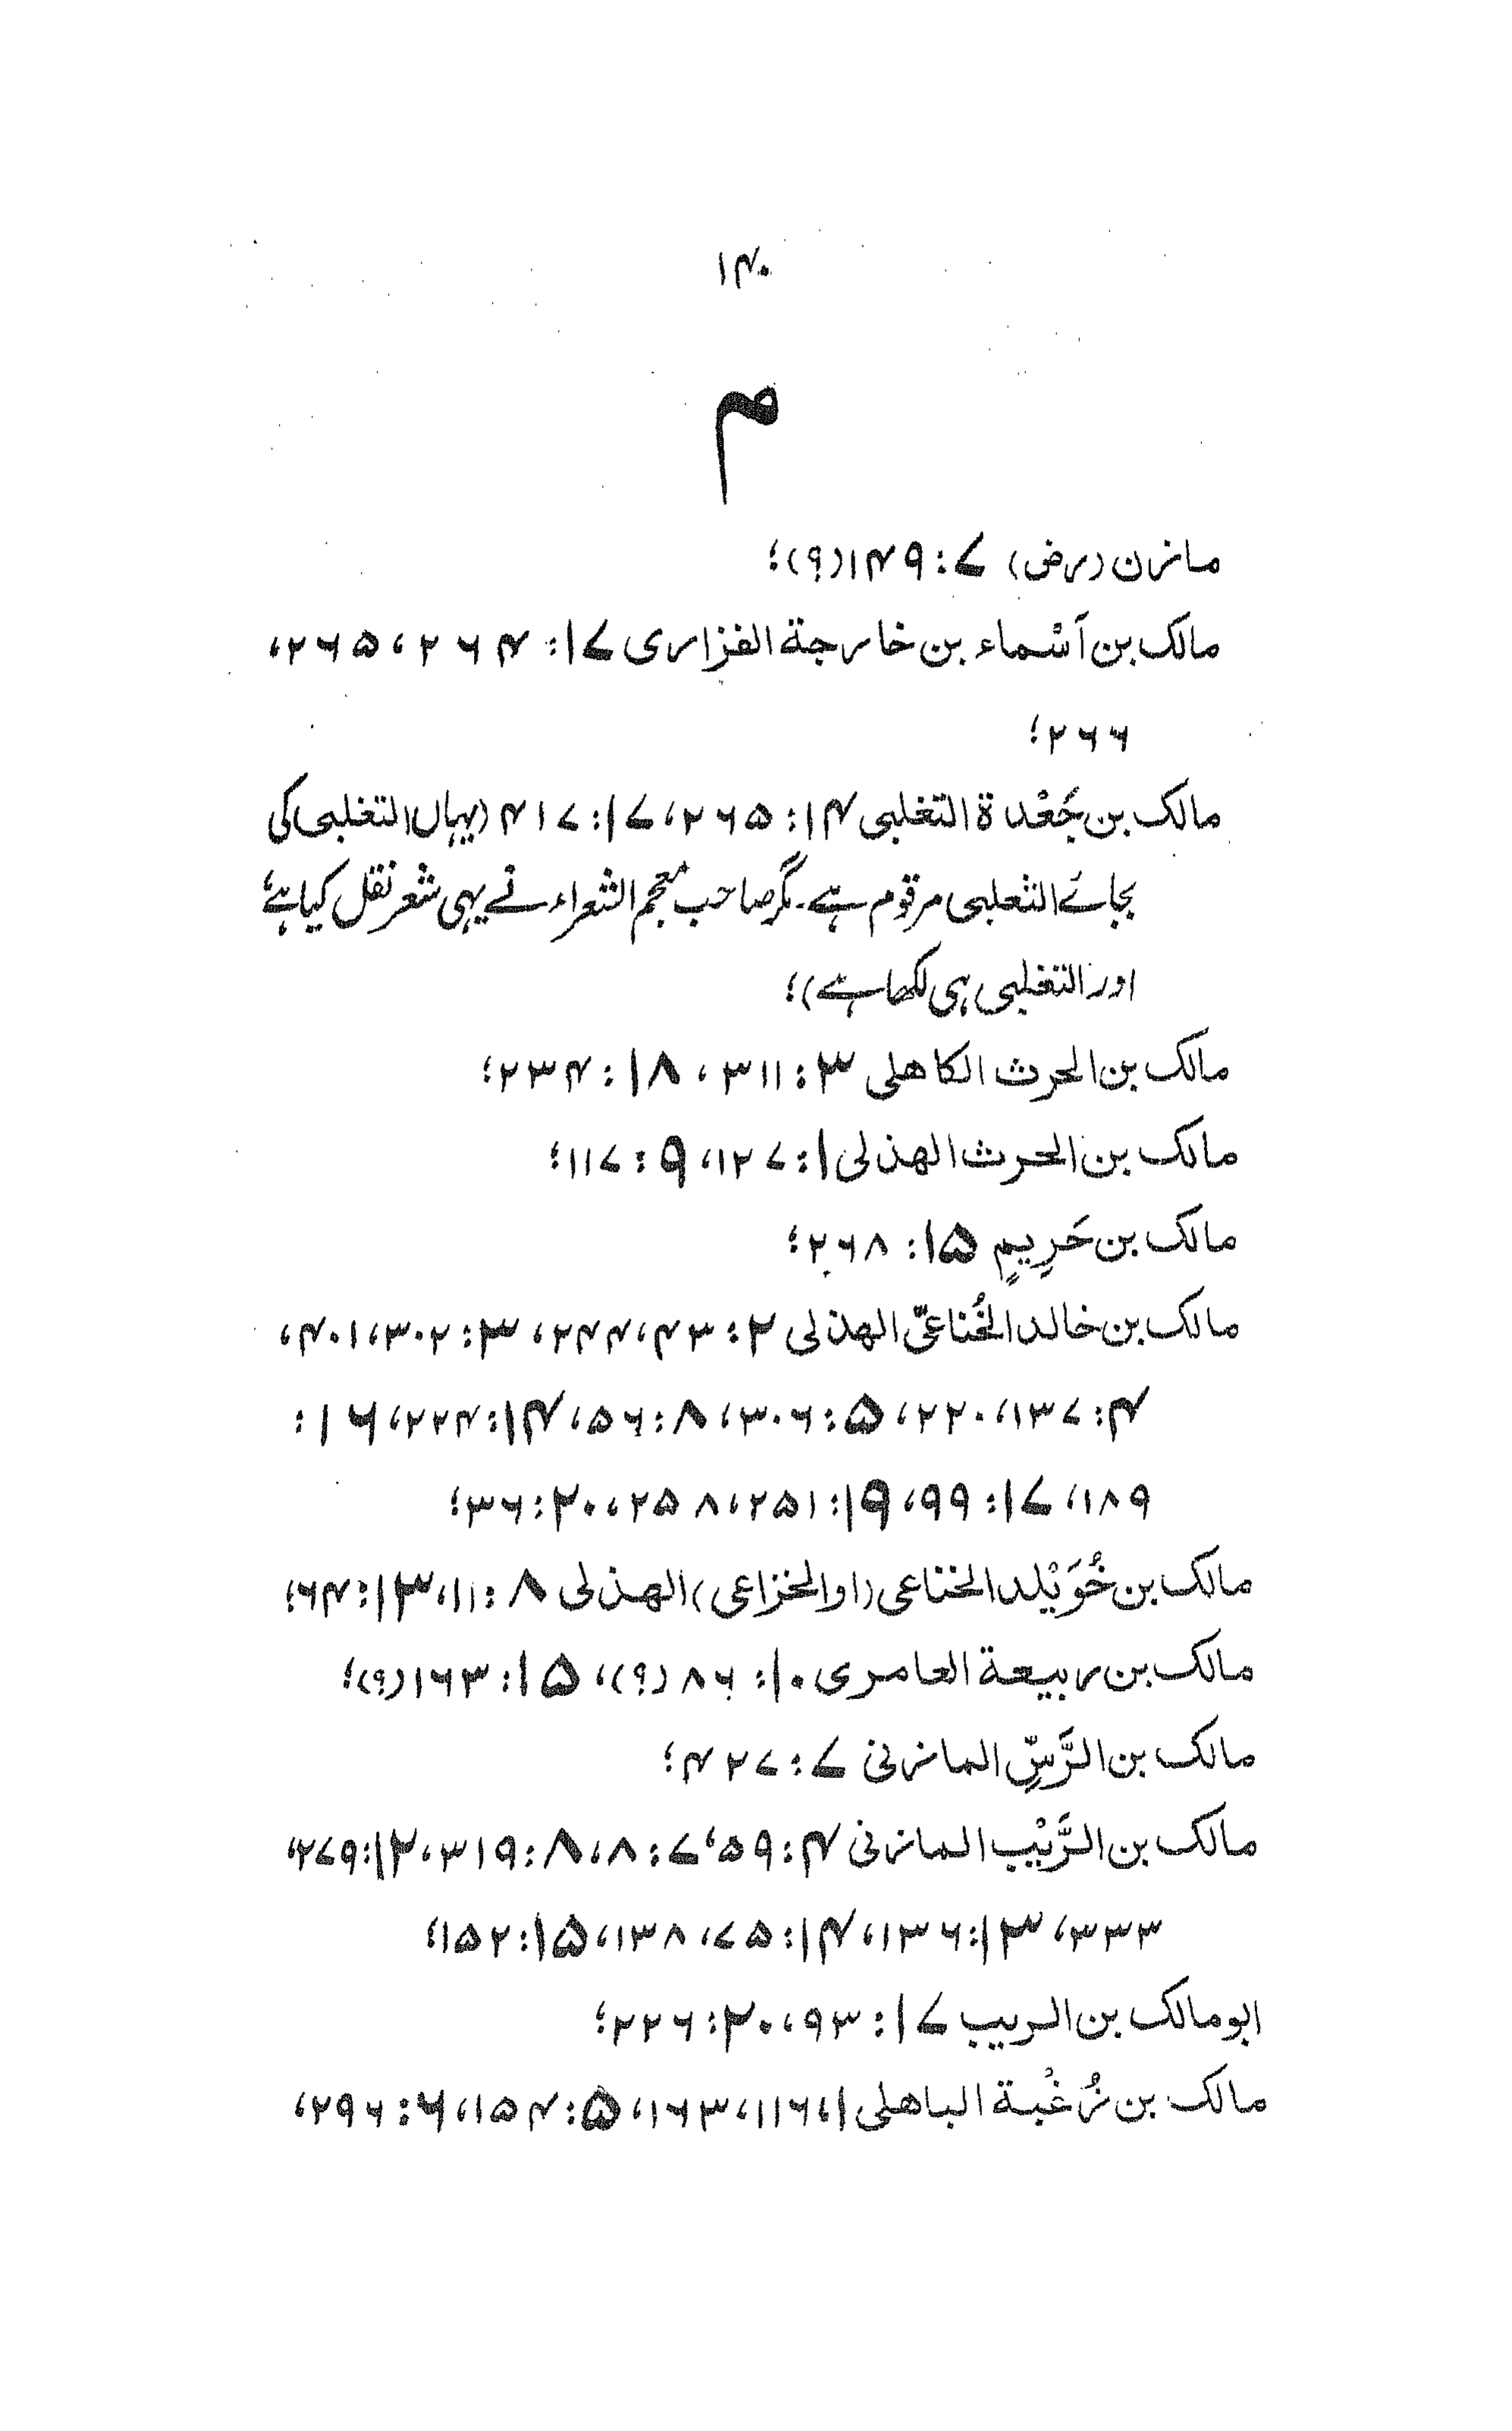 ۱۴۰
م
مازن (رض) ۷: ۱۴۹(؟)؛
مالک بن أسْماء بن خارجة الفزاری ۱۷: ۲۶۴، ۲۶۵،
۲۶۶؛
مالک بن جَعْدة التغلبی ۱۴: ۲۶۵، ۱۷: ۴۱۷ (یہاں التغلبی کی
بجائے الثعلبی مرقوم ہے۔ مگر صاحب معجم الشعراء نے یہی شعر نقل کیا ہے
اور التغلبی ہی لکھا ہے)؛
مالک بن الحرث الکاهلی ۳: ۳۱۱، ۱۸: ۲۳۴؛
مالک بن الحرث الهذلی ۱: ۱۲۷، ۹: ۱۱۷؛
مالک بن حَرِیمٍ ۱۵: ۲۶۸؛
مالک بن خالد الخُناعیّ الهذلی ۲: ۴۳، ۲۴۴، ۳: ۳۰۲، ۴۰۱،
۴: ۱۳۷، ۲۲۰، ۵: ۳۰۶، ۸: ۵۶، ۱۴: ۲۲۴، ۱۶:
۱۸۹، ۱۷: ۹۹، ۱۹: ۲۵۱، ۲۵۸، ۲۰: ۳۶؛
مالک بن خُوَیْلد الخناعی (او الخزاعی) الهذلی ۸: ۱۱، ۱۳: ۶۴؛
مالک بن ربیعة العامری ۱۰: ۸۶ (؟)، ۱۵: ۱۶۳(؟)؛
مالک بن الرَّسِّ المازنی ۷: ۴۲۷؛
مالک بن الرَّیْب المازنی ۴: ۵۹، ۷: ۸، ۸: ۳۱۹، ۱۲: ۲۷۹،
۳۳۳، ۱۳: ۱۳۶، ۱۴: ۷۵، ۱۳۸، ۱۵: ۱۵۲؛
ابومالک بن الریب ۱۷: ۹۳، ۲۰: ۲۲۶؛
مالک بن زُغْبة الباهلی ۱، ۱۱۶، ۱۶۳، ۵: ۱۵۴، ۶: ۲۹۶،